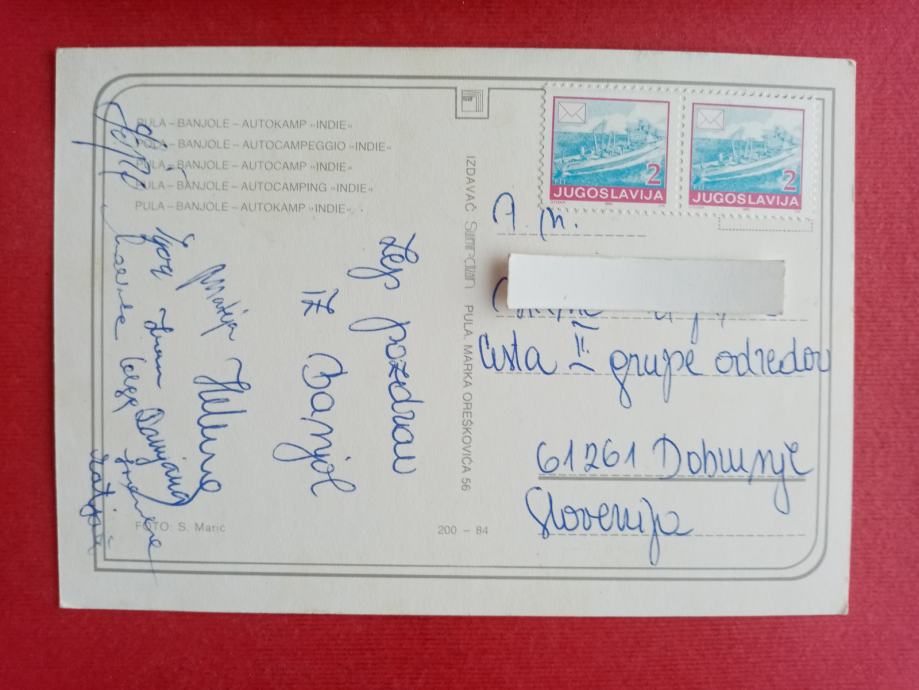 PULA – BANJOLE – AUTOKAMP »INDIE«
PULA – BANJOLE – AUTOCAMPEGGIO »INDIE«
PULA – BANJOLE – AUTOCAMP »INDIE«
PULA – BANJOLE – AUTOCAMPING »INDIE«
PULA – BANJOLE – AUTOKAMP »INDIE«
Lep pozdrav
iz Banjol
Helena
Matija
Igor
Damjana
FOTO: S. Marić
200 – 84
IZDAVAČ PULA, MARKA OREŠKOVIĆA 56
2
JUGOSLAVIJA
2
JUGOSLAVIJA
Cesta II grupe odredov
61261 Dobrunje
Slovenija